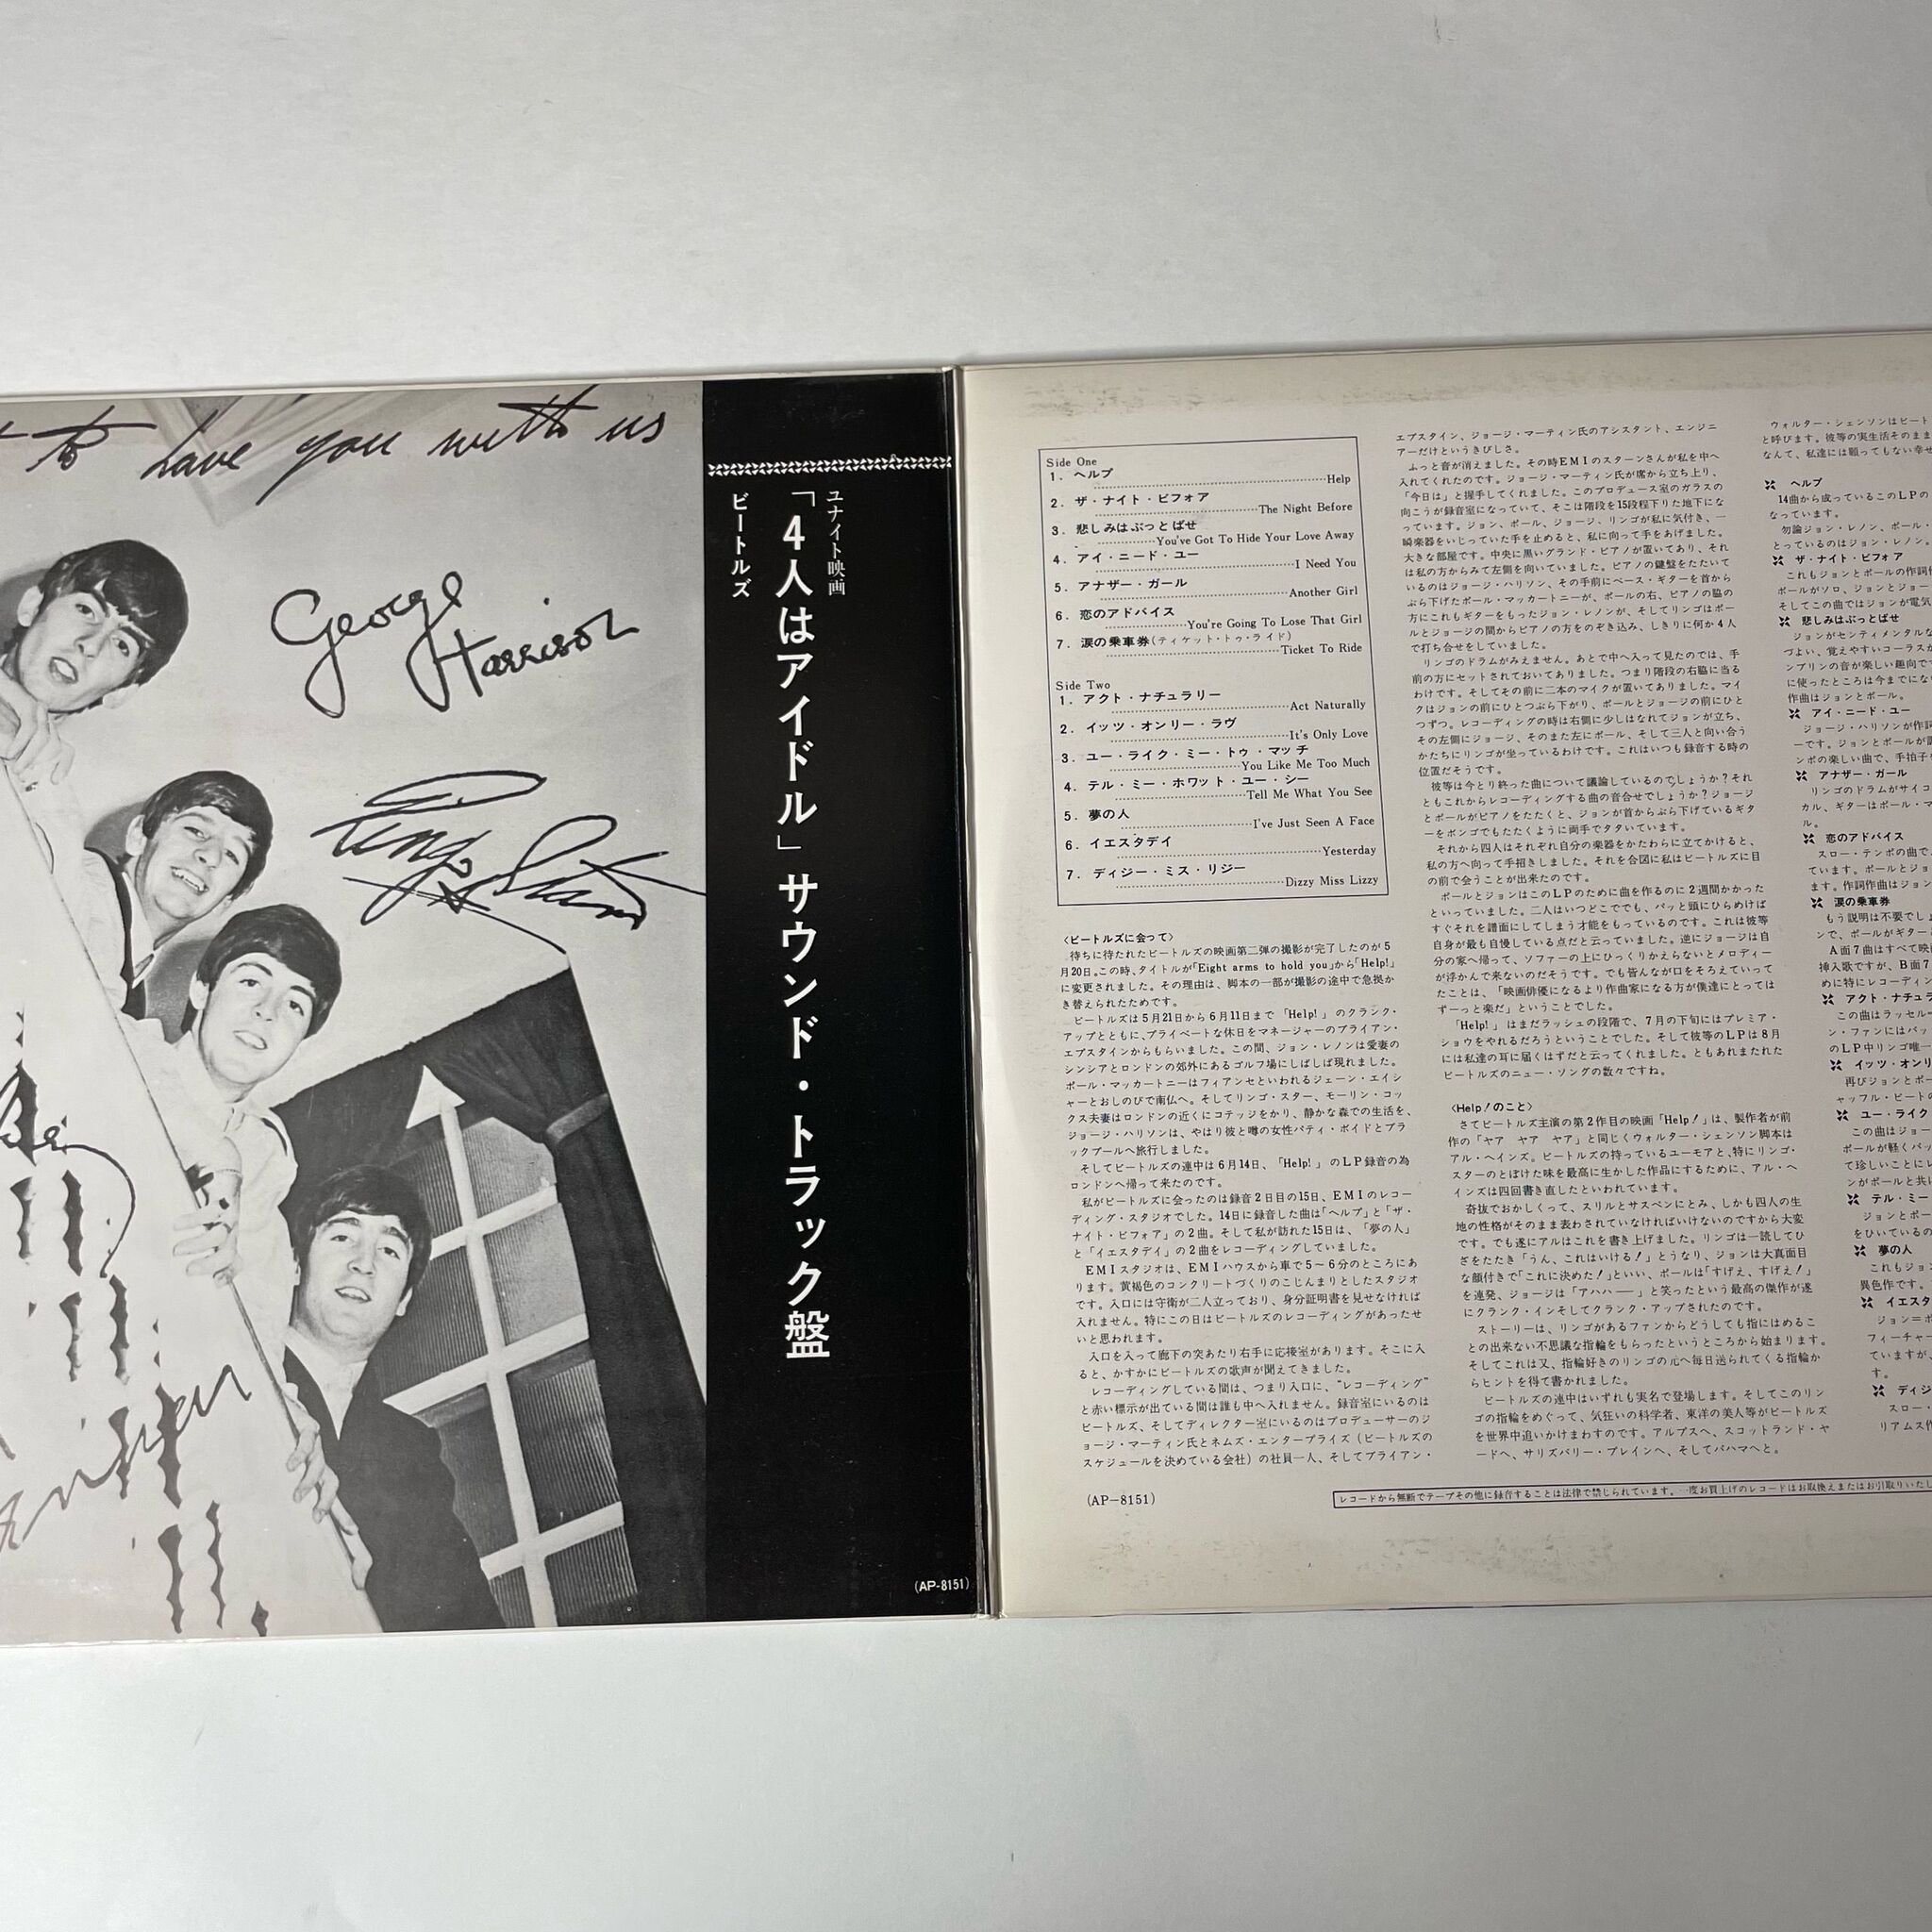 to have you with us
George
Harrison
Ringo Starr
ユナイト映画
「4人はアイドル」サウンド・トラック盤
ビートルズ
(AP-8151)
Side One
1. ヘルプ
Help
2. ザ・ナイト・ビフォア
The Night Before
3. 悲しみはぶっとばせ
You've Got To Hide Your Love Away
4. アイ・ニード・ユー
I Need You
5. アナザー・ガール
Another Girl
6. 恋のアドバイス
You're Going To Lose That Girl
7. 涙の乗車券(ティケット・トゥ・ライド)
Ticket To Ride
Side Two
1. アクト・ナチュラリー
Act Naturally
2. イッツ・オンリー・ラヴ
It's Only Love
3. ユー・ライク・ミー・トゥ・マッチ
You Like Me Too Much
4. テル・ミー・ホワット・ユー・シー
Tell Me What You See
5. 夢の人
I've Just Seen A Face
6. イエスタデイ
Yesterday
7. ディジー・ミス・リジー
Dizzy Miss Lizzy
〈ビートルズに会って〉
待ちに待たれたビートルズの映画第二弾の撮影が完了したのが5
月20日。この時、タイトルが「Eight arms to hold you」から「Help!」
に変更されました。その理由は、脚本の一部が撮影の途中で急拠か
き替えられたためです。
ビートルズは5月21日から6月11日まで「Help!」のクランク・
アップとともに、プライベートな休日をマネージャーのブライアン・
エプスタインからもらいました。この間、ジョン・レノンは愛妻の
シンシアとロンドンの郊外にあるゴルフ場にしばしば現れました。
ポール・マッカートニーはフィアンセといわれるジェーン・エイシ
ャーとおしのびで南仏へ。そしてリンゴ・スター、モーリン・コッ
クス夫妻はロンドンの近くにコテッジをかり、静かな森での生活を、
ジョージ・ハリソンは、やはり彼と噂の女性パティ・ボイドとブラ
ックプールへ旅行しました。
そしてビートルズの連中は6月14日、「Help!」のLP録音の為
ロンドンへ帰って来たのです。
私がビートルズに会ったのは録音2日目の15日、EMIのレコー
ディング・スタジオでした。14日に録音した曲は「ヘルプ」と「ザ・
ナイト・ビフォア」の2曲。そして私が訪れた15日は、「夢の人」
と「イエスタデイ」の2曲をレコーディングしていました。
EMIスタジオは、EMIハウスから車で5～6分のところにあ
ります。黄褐色のコンクリートづくりのこじんまりとしたスタジオ
です。入口には守衛が二人立っており、身分証明書を見せなければ
入れません。特にこの日はビートルズのレコーディングがあったせ
いと思われます。
入口を入って廊下の突あたり右手に応接室があります。そこに入
ると、かすかにビートルズの歌声が聞えてきました。
レコーディングしている間は、つまり入口に、"レコーディング"
と赤い標示が出ている間は誰も中へ入れません。録音室にいるのは
ビートルズ、そしてディレクター室にいるのはプロデューサーのジ
ョージ・マーティン氏とネムズ・エンタープライズ（ビートルズの
スケジュールを決めている会社）の社員一人、そしてブライアン・
(AP-8151)
エプスタイン、ジョージ・マーティン氏のアシスタント、エンジニ
アーだけというきびしさ。
ふっと音が消えました。その時EMIのスターンさんが私を中へ
入れてくれたのです。ジョージ・マーティン氏が席から立ち上り、
「今日は」と握手してくれました。このプロデュース室のガラスの
向こうが録音室になっていて、そこは階段を15段程下りた地下にな
っています。ジョン、ポール、ジョージ、リンゴが私に気付き、一
瞬楽器をいじっていた手を止めると、私に向って手をあげました。
大きな部屋です。中央に黒いグランド・ピアノが置いてあり、それ
は私の方からみて左側を向いていました。ピアノの鍵盤をたたいて
いるのはジョージ・ハリソン、その手前にベース・ギターを首から
ぶら下げたポール・マッカートニーが、ポールの右、ピアノの脇の
方にこれもギターをもったジョン・レノンが、そしてリンゴはポー
ルとジョージの間からピアノの方をのぞき込み、しきりに何か4人
で打ち合せをしていました。
リンゴのドラムがみえません。あとで中へ入って見たのでは、手
前の方にセットされておいてありました。つまり階段の右脇に当る
わけです。そしてその前に二本のマイクが置いてありました。マイ
クはジョンの前にひとつぶら下がり、ポールとジョージの前にひと
つずつ。レコーディングの時は右側に少しはなれてジョンが立ち、
その左側にジョージ、そのまた左にポール、そして三人と向い合う
かたちにリンゴが坐っているわけです。これはいつも録音する時の
位置だそうです。
彼等は今とり終った曲について議論しているのでしょうか？それ
ともこれからレコーディングする曲の音合せでしょうか？ジョージ
とポールがピアノをたたくと、ジョンが首からぶら下げているギタ
ーをボンゴでもたたくように両手でタタいています。
それから四人はそれぞれ自分の楽器をかたわらに立てかけると、
私の方へ向って手招きしました。それを合図に私はビートルズに目
の前で会うことが出来たのです。
ポールとジョンはこのLPのために曲を作るのに2週間かかった
といっていました。二人はいつどこででも、パッと頭にひらめけば
すぐそれを譜面にしてしまう才能をもっているのです。これは彼等
自身が最も自慢している点だと云っていました。逆にジョージは自
分の家へ帰って、ソファーの上にひっくりかえらないとメロディー
が浮かんで来ないのだそうです。でも皆んなが口をそろえていって
たことは、「映画俳優になるより作曲家になる方が僕達にとっては
ずーっと楽だ」ということでした。
「Help!」はまだラッシュの段階で、7月の下旬にはプレミア・
ショウをやれるだろうということでした。そして彼等のLPは8月
には私達の耳に届くはずだと云ってくれました。ともあれまたれた
ビートルズのニュー・ソングの数々ですね。
〈Help!のこと〉
さてビートルズ主演の第2作目の映画「Help!」は、製作者が前
作の「ヤア ヤア ヤア」と同じくウォルター・シェンソン脚本は
アル・ヘインズ。ビートルズの持っているユーモアと、特にリンゴ・
スターのとぼけた味を最高に生かした作品にするために、アル・ヘ
インズは四回書き直したといわれています。
奇抜でおかしくって、スリルとサスペンにとみ、しかも四人の生
地の性格がそのまま表わされていなければいけないのですから大変
です。でも遂にアルはこれを書き上げました。リンゴは一読してひ
ざをたたき「うん、これはいける!」とうなり、ジョンは大真面目
な顔付きで「これに決めた!」といい、ポールは「すげえ、すげえ!」
を連発、ジョージは「アハハ――」と笑ったという最高の傑作が遂
にクランク・インそしてクランク・アップされたのです。
ストーリーは、リンゴがあるファンからどうしても指にはめるこ
との出来ない不思議な指輪をもらったというところから始まります。
そしてこれは又、指輪好きのリンゴの元へ毎日送られてくる指輪か
らヒントを得て書かれました。
ビートルズの連中はいずれも実名で登場します。そしてこのリン
ゴの指輪をめぐって、気狂いの科学者、東洋の美人等がビートルズ
を世界中追いかけまわすのです。アルプスへ、スコットランド・ヤ
ードへ、サリズバリー・プレインへ、そしてバハマへと。
レコードから無断でテープその他に録音することは法律で禁じられています。一度お買上げのレコードはお取換えまたはお引取りいたし
ウォルター・シェンソンはビート
と呼びます。彼等の実生活そのまま
なんて、私達には願ってもない幸せ
ヘルプ
14曲から成っているこのLPの
なっています。
勿論ジョン・レノン、ポール・
とっているのはジョン・レノン。
ザ・ナイト・ビフォア
これもジョンとポールの作詞作
ポールがソロ、ジョンとジョー
そしてこの曲ではジョンが電気
悲しみはぶっとばせ
ジョンがセンティメンタルな
づよい、覚えやすいコーラスが
ンブリンの音が楽しい趣向で
に使ったところは今までにな
作曲はジョンとポール。
アイ・ニード・ユー
ジョージ・ハリソンが作詞
ーです。ジョンとポールが
ンポの楽しい曲で、手拍子
アナザー・ガール
リンゴのドラムがサイコ
カル、ギターはポール・マ
ル。
恋のアドバイス
スロー・テンポの曲で、
ています。ポールとジョ
ます。作詞作曲はジョン
涙の乗車券
もう説明は不要でし
ンで、ポールがギター
A面7曲はすべて映
挿入歌ですが、B面7
めに特にレコーディン
アクト・ナチュラ
この曲はラッセル
ン・ファンにはバッ
のLP中リンゴ唯一
イッツ・オンリ
再びジョンとポー
ャッフル・ビートの
ユー・ライク
この曲はジョー
ポールが軽くバッ
て珍しいことにレ
ンがポールと共に
テル・ミー
ジョンとポー
をひいているの
夢の人
これもジョン
異色作です。
イエスタ
ジョン＝ポ
フィーチャー
ていますが、
す。
ディジ
スロー・
リアムス作